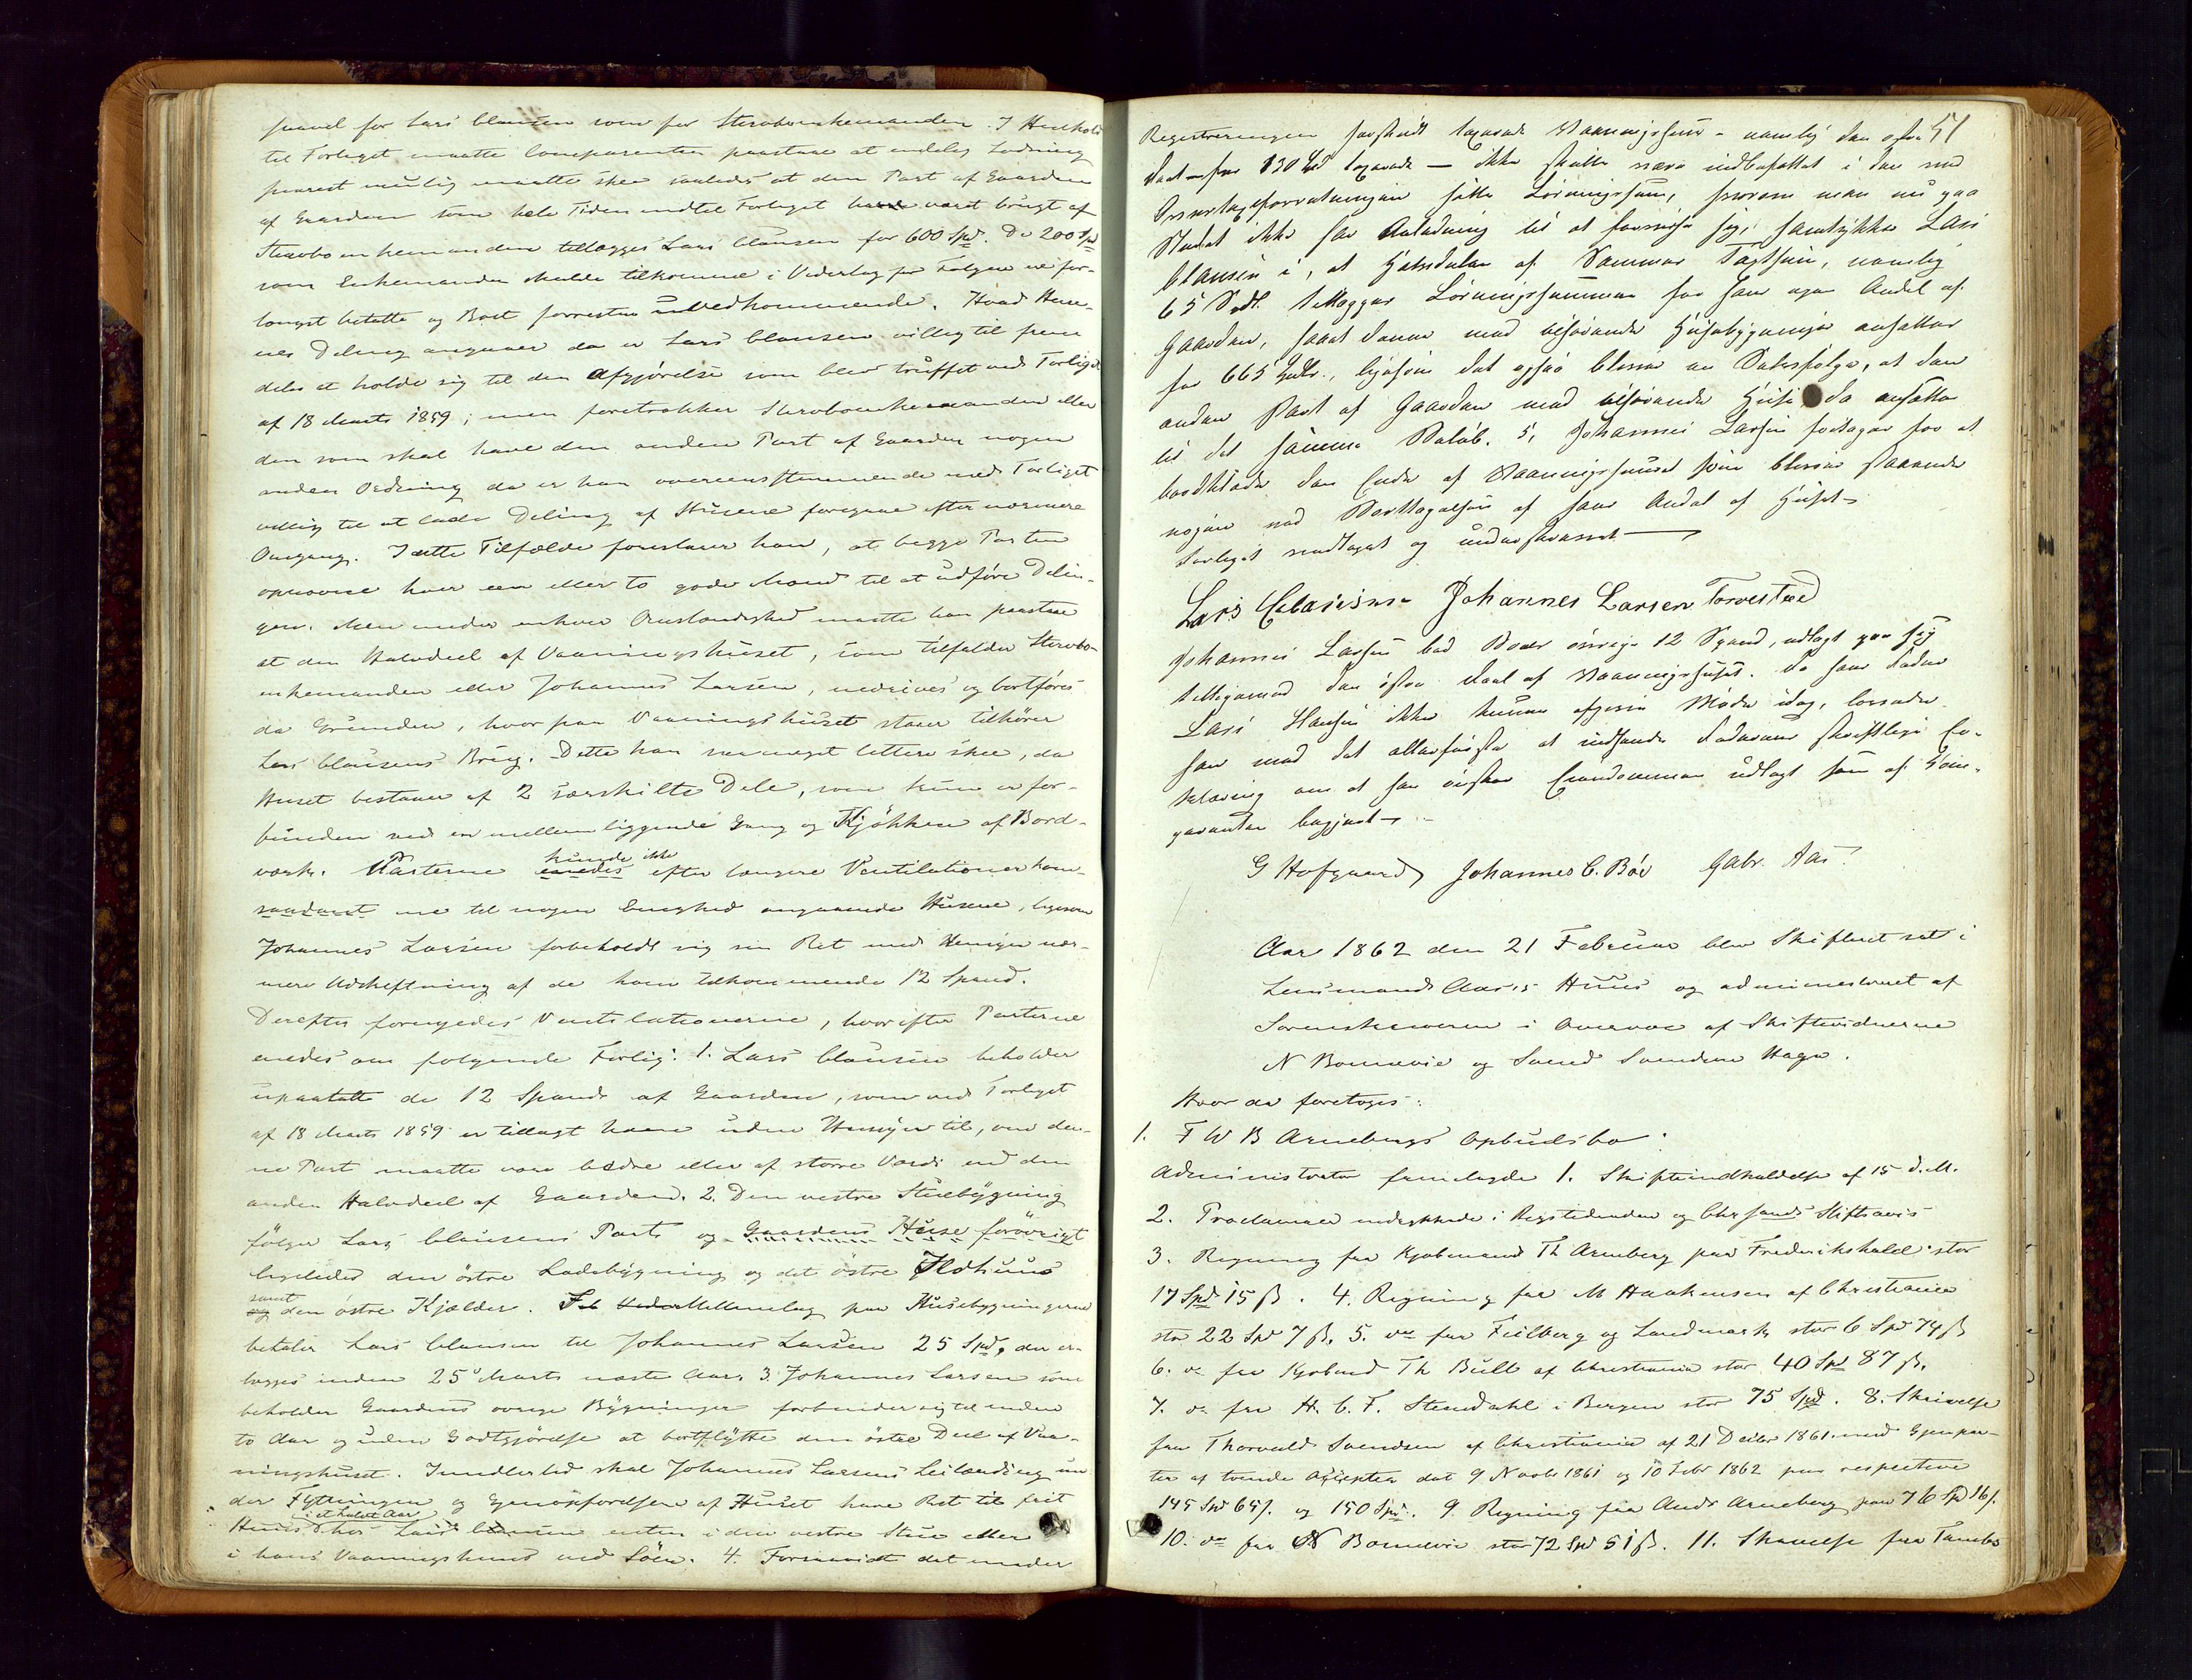 saavel for Lars Clausen som for Stervboenkemanden. I Henhold
til Forliget maatte Comparenten paastaae at endelig Lodning
snarest mulig maatte skee saaledes at den Part af Gaarden
af Gaarden som hele Tiden indtil Forliget havde været brugt af
Stervboenkemanden tillægges Lars Clausen for 600 Spd. De 200 Spd
som Enkemanden skulde tilkomme i Vederlag for Følgen ere for-
længst betalte og Boet forresten uvedkommende. Hvad Huse-
nes Deling angaaer da er Lars Clausen villig til frem
deles at holde sig til den Afgjörelse som blev truffet ved Forliget
af 18 Marts 1859; men foretrækker Stervboenkemanden eller
den som skal have den anden Part af Gaarden nogen
anden Ordning da er han overensstemmende med Forliget
villig til at lade Deling af Husene foregaae efter nærmere
Omgang. I dette Tilfælde foreslaaer han, at begge Parter
opnævne hver een eller to gode Mænd til at udföre Delin-
gen. Men under enhver Omstændighed maatte han paastaae
at den Halvdeel af Vaaningshuset, som tilfalder Stervbo-
enkemanden eller Johannes Larsen, nedrives og bortföres
da Grunden, hvor paa Vaaningshuset staaer tilhörer
Lars Clausens Brug. Dette kan saa meget lettere skee, da
Huset bestaaer af 2 særskilte Dele, som kun er for-
bunden ved en mellemliggende Gang og Kjökken af Bord-
værk. Parterne enedes kunde ikke efter længere Ventilationer kom-
me til nogen Eenighed angaaende Husene, ligesom
Johannes Larsen forbeholdt sig sin Ret med Hensyn nær-
mere Udskiftning af de ham tilkommende 12 Spand.
Derefter fornyedes Ventilationerne, hvorefter Parterne
enedes om folgende Forlig: 1. Lars Clausen beholder
upaatalt de 12 Spand af Gaarden, som ved Forliget
af 18 Marts 1859 er tillagt ham uden Hensyn til, om den-
ne Part maatte være bedre eller af større Værdi end den
anden Halvdeel af Gaarden. 2. Den vestre Stuebÿgning
fölger Lars Clausens Part og Gaardens Huse forövrigt
ligeledes den östre Ladebÿgning og det östre Ildhuus
og samt den östre Kjælder. Mellemlag paa Husebygningerne
betaler Lars Clausen til Johannes Larsen 25 Spd, der er-
lægges inden 25 Marts næste Aar. 3. Johannes Larsen som
beholder Gaardens øvrige Bÿgninger forbinder sig til inden
to Aar og uden Godtgjörelse at bortflÿtte den östre Deel af Vaa-
ningshuset. Imidlertid skal Johannes Larsens Leilænding un
der Fÿtningen og Gjenopförelsen af Huset have Ret til frit
Huus i et halvt Aar hos Lars Clausen enten i den vestre Stue eller
i hans Vaaningshuus ved Söen. 4. Forsaavidt det under
51
Registreringen særskildt taxerede Vaaningshuus – namlig den østre
Deel – for 130 Spd taxerede – ikke skulde være indbefattet i den ved
Overtagsforretningen satte Løsningssum, hvorom man nu paa
Stedet ikke har Anledning til at forvisse sig, samtykker Lars
Clausen i, at Halvdelen af Sammes Taxtsum, namlig
65 Spdl. tillægges Løsningssummen for hans egen Andel af
Gaarden, saa at denne med tilhørende Husebygninger ansættes
for 665 Spdlr., ligesom det ogsaa bliver en Selvfølge, at den
anden Part af Gaarden med tilhørende Huse da ansættes
til det samme Beløb. 5, Johannes Larsen foretager for at
bordklæde den Ende af Vaaningshuset som bliver staaende
nøgen ved Borttagelsen af hans Andel af Huset –
Forliget vedtaget og underskrevet –
Lars Clausen Johannes Larsen Torvestad
Johannes Larsen bad Boets øvrige 12 Spand, udlagt paa sig
tilligemed den østre Deel af Vaaningshuset. Da hans Fader
Lars Hansen ikke kunne afgive Møde idag, lovede
han med det allerførste at indsende Faderens skriftlige Er-
klæring om at han ønsker Eiendommen udlagt som af Com-
parenten begjært –
G Hofgaard, Johannes C. Bøe Gabr. Aas.
Aar 1862 den 21 Februar blev Skifteret sat i
Lensmand Aas's Huus og administreret af
Sorenskriveren i Overvær af Skiftevidnerne
N Bonnevie og Svend Svendsen Hage.
Hvor da foretoges:
1. F W B Arnebergs Opbudsbo:
Administrator fremlagde 1. Skifteindkaldelse af 15 d.M.
2. Proclamaer indrykkede i Rigstidenden og Chrsands Stiftsavis
3. Regning fra Kjøbmand Th Arneberg paa Frederikshald stor
17 Spd 15 ß. 4. Regning fra M Haakensen af Christiania
stor 22 Spd 7 ß. 5. do fra Feilberg og Landmark stor 6 Spd 74 ß
6. do fra Kjøbmd Th Bull af Christiania stor 40 Spd 87 ß.
7. do fra H. C. F. Stendahl i Bergen stor 75 Spd. 8. Skrivelse
fra Thorvald Svendsen af Christiania af 21 Decbr 1861 med Gjenpar-
ter af tvende Accepter dat 9 Novbr 1861 og 10 Febr 1862 paa respective
145 Spd 65ß. og 150 Spd. 9. Regning fra Andr Arneberg paa 76 Spd 16ß.
10. do fra N Bonnevie stor 72 Spd 51ß. 11. Skrivelse fra Tambs